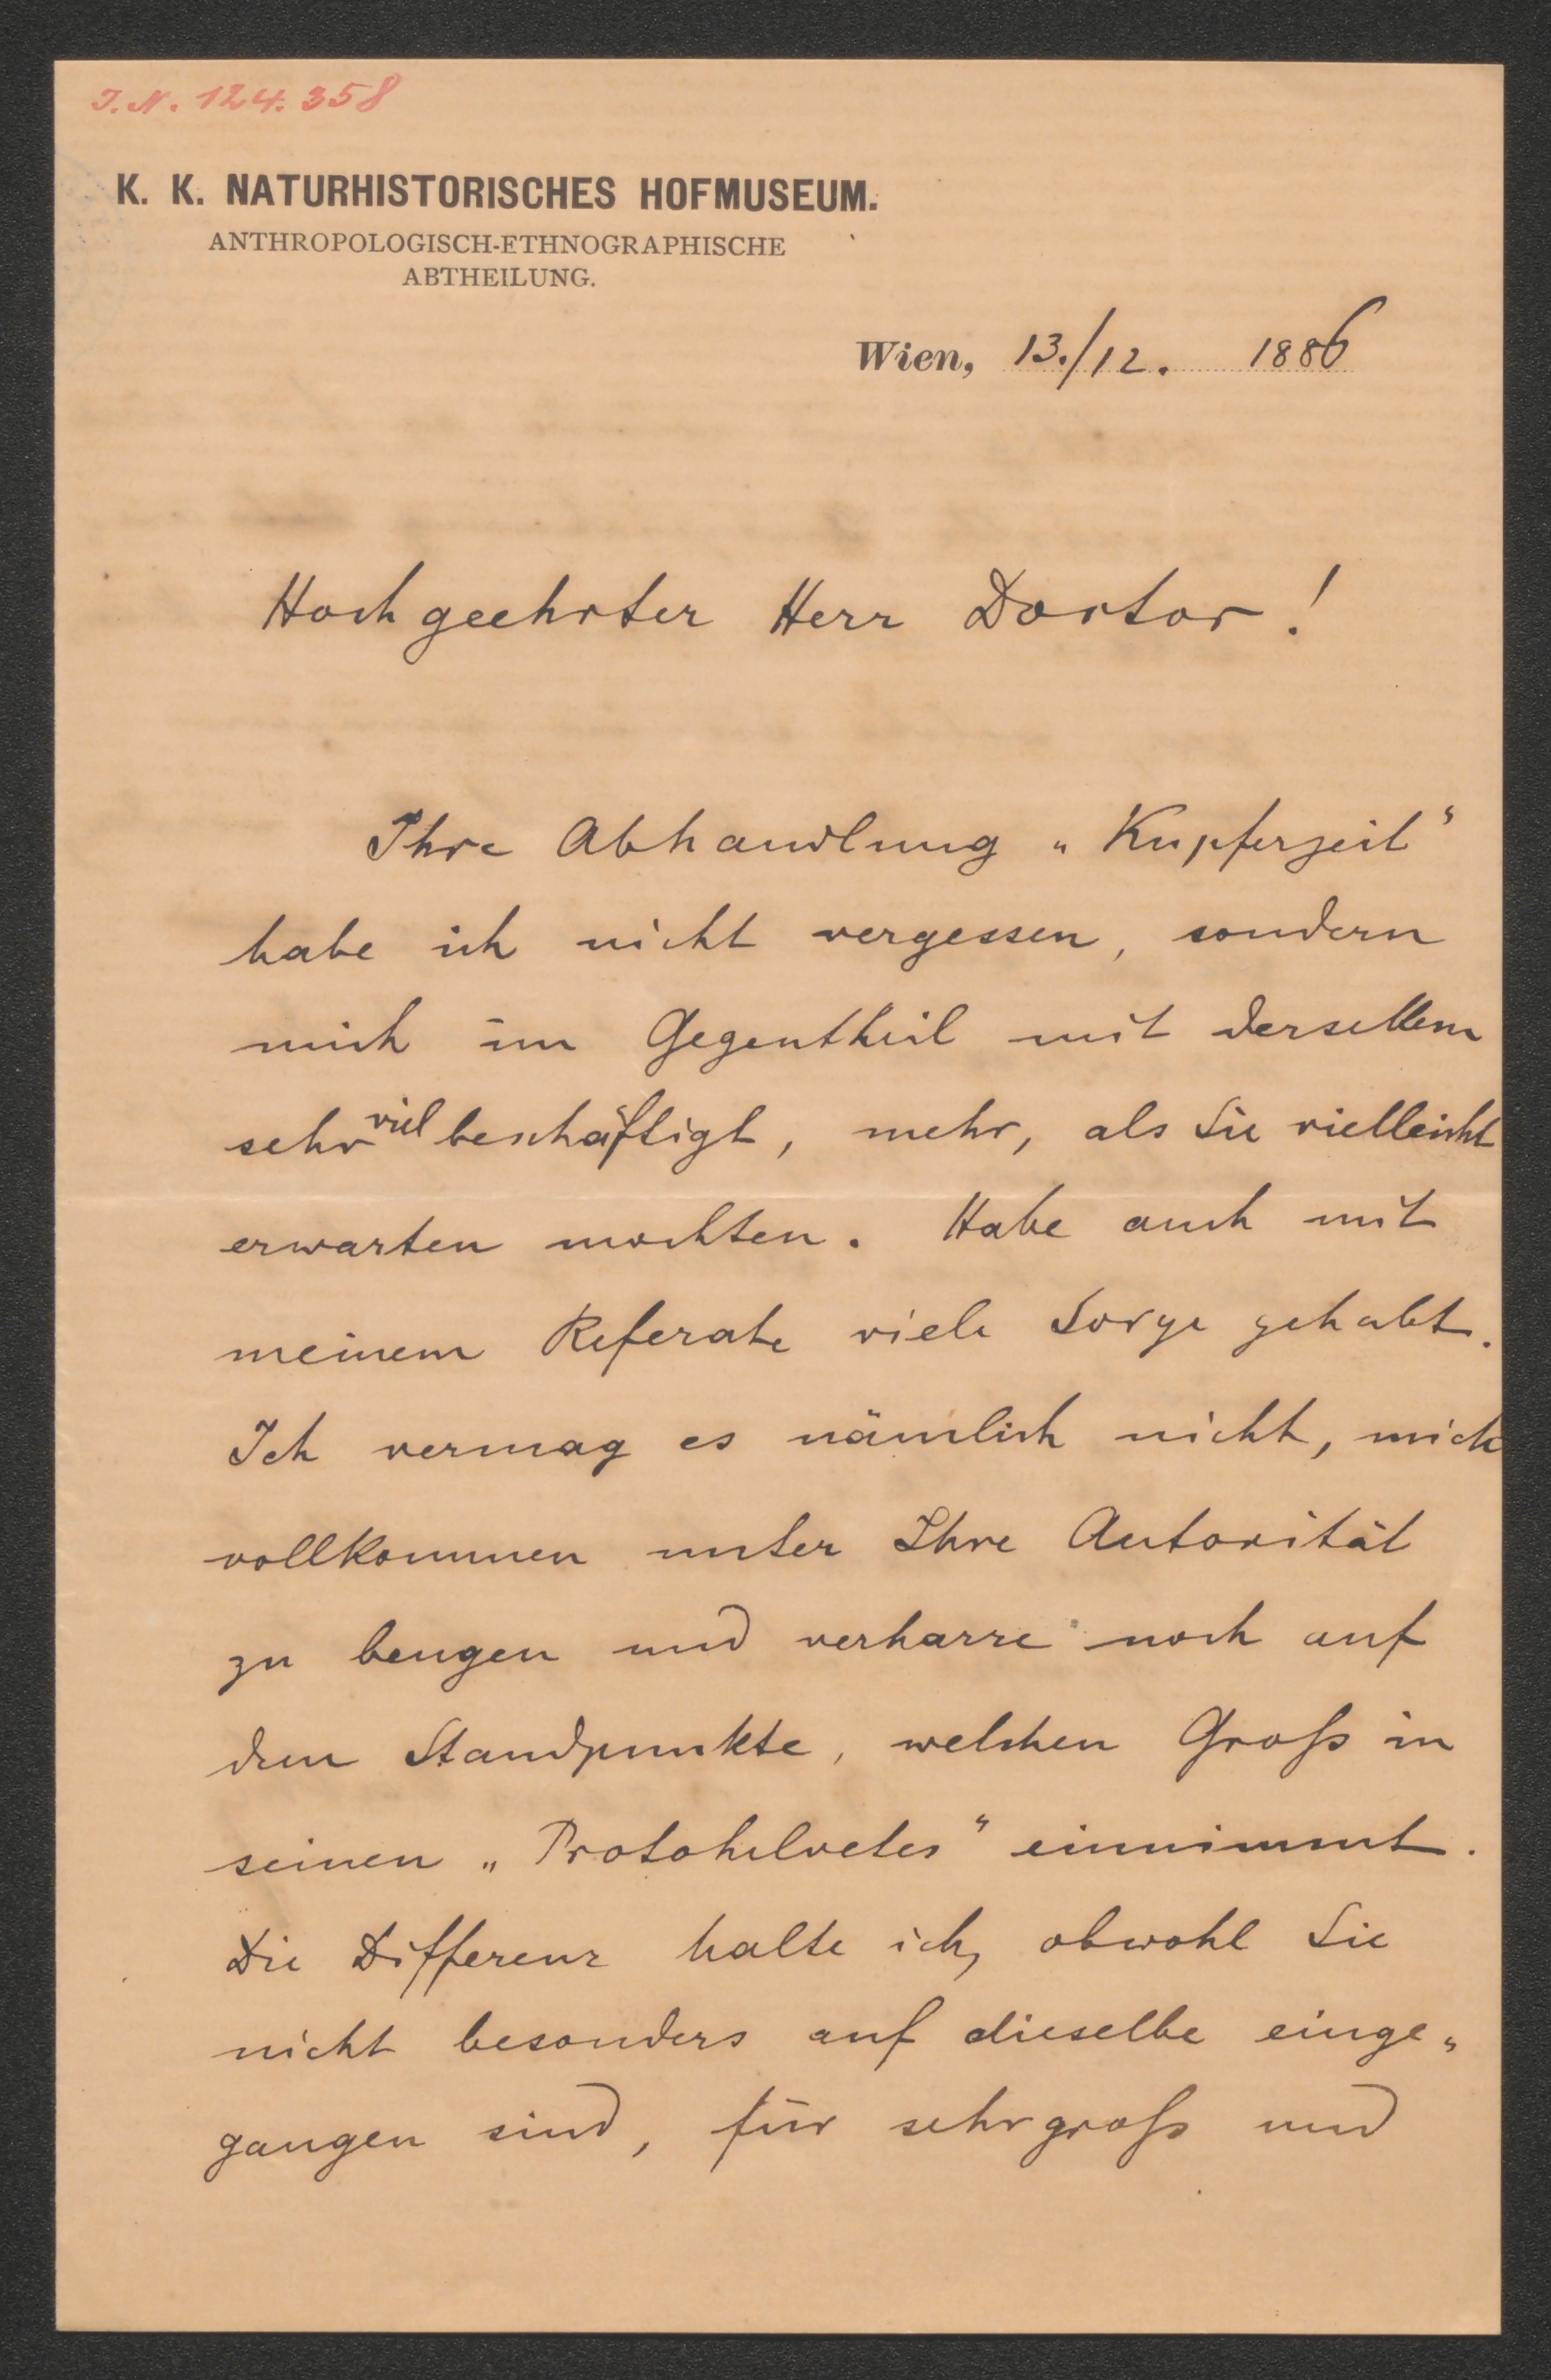 J. N. 124. 358
K. K. NATURHISTORISCHES HOFMUSEUM.
ANTHROPOLOGISCH-ETHNOGRAPHISCHE
ABTHEILUNG.
Wien, 13./12. 1886
Hochgeehrter Herr Doctor!
Ihre Abhandlung „Kupferzeit“
habe ich nicht vergessen, sondern
mich im Gegentheil mit derselben
sehr viel beschäftigt, mehr, als Sie vielleicht
erwarten mochten. Habe auch mit
meinem Referate viele Sorge gehabt.
Ich vermag es nämlich nicht, mich
vollkommen unter Ihre Autorität
zu beugen und verharre noch auf
dem Standpunkte, welchen Groß in
seinen „Protohelvetes“ einnimmt.
Die Differenz halte ich, obwohl Sie
nicht besonders auf dieselbe einge„
gangen sind, für sehr groß und